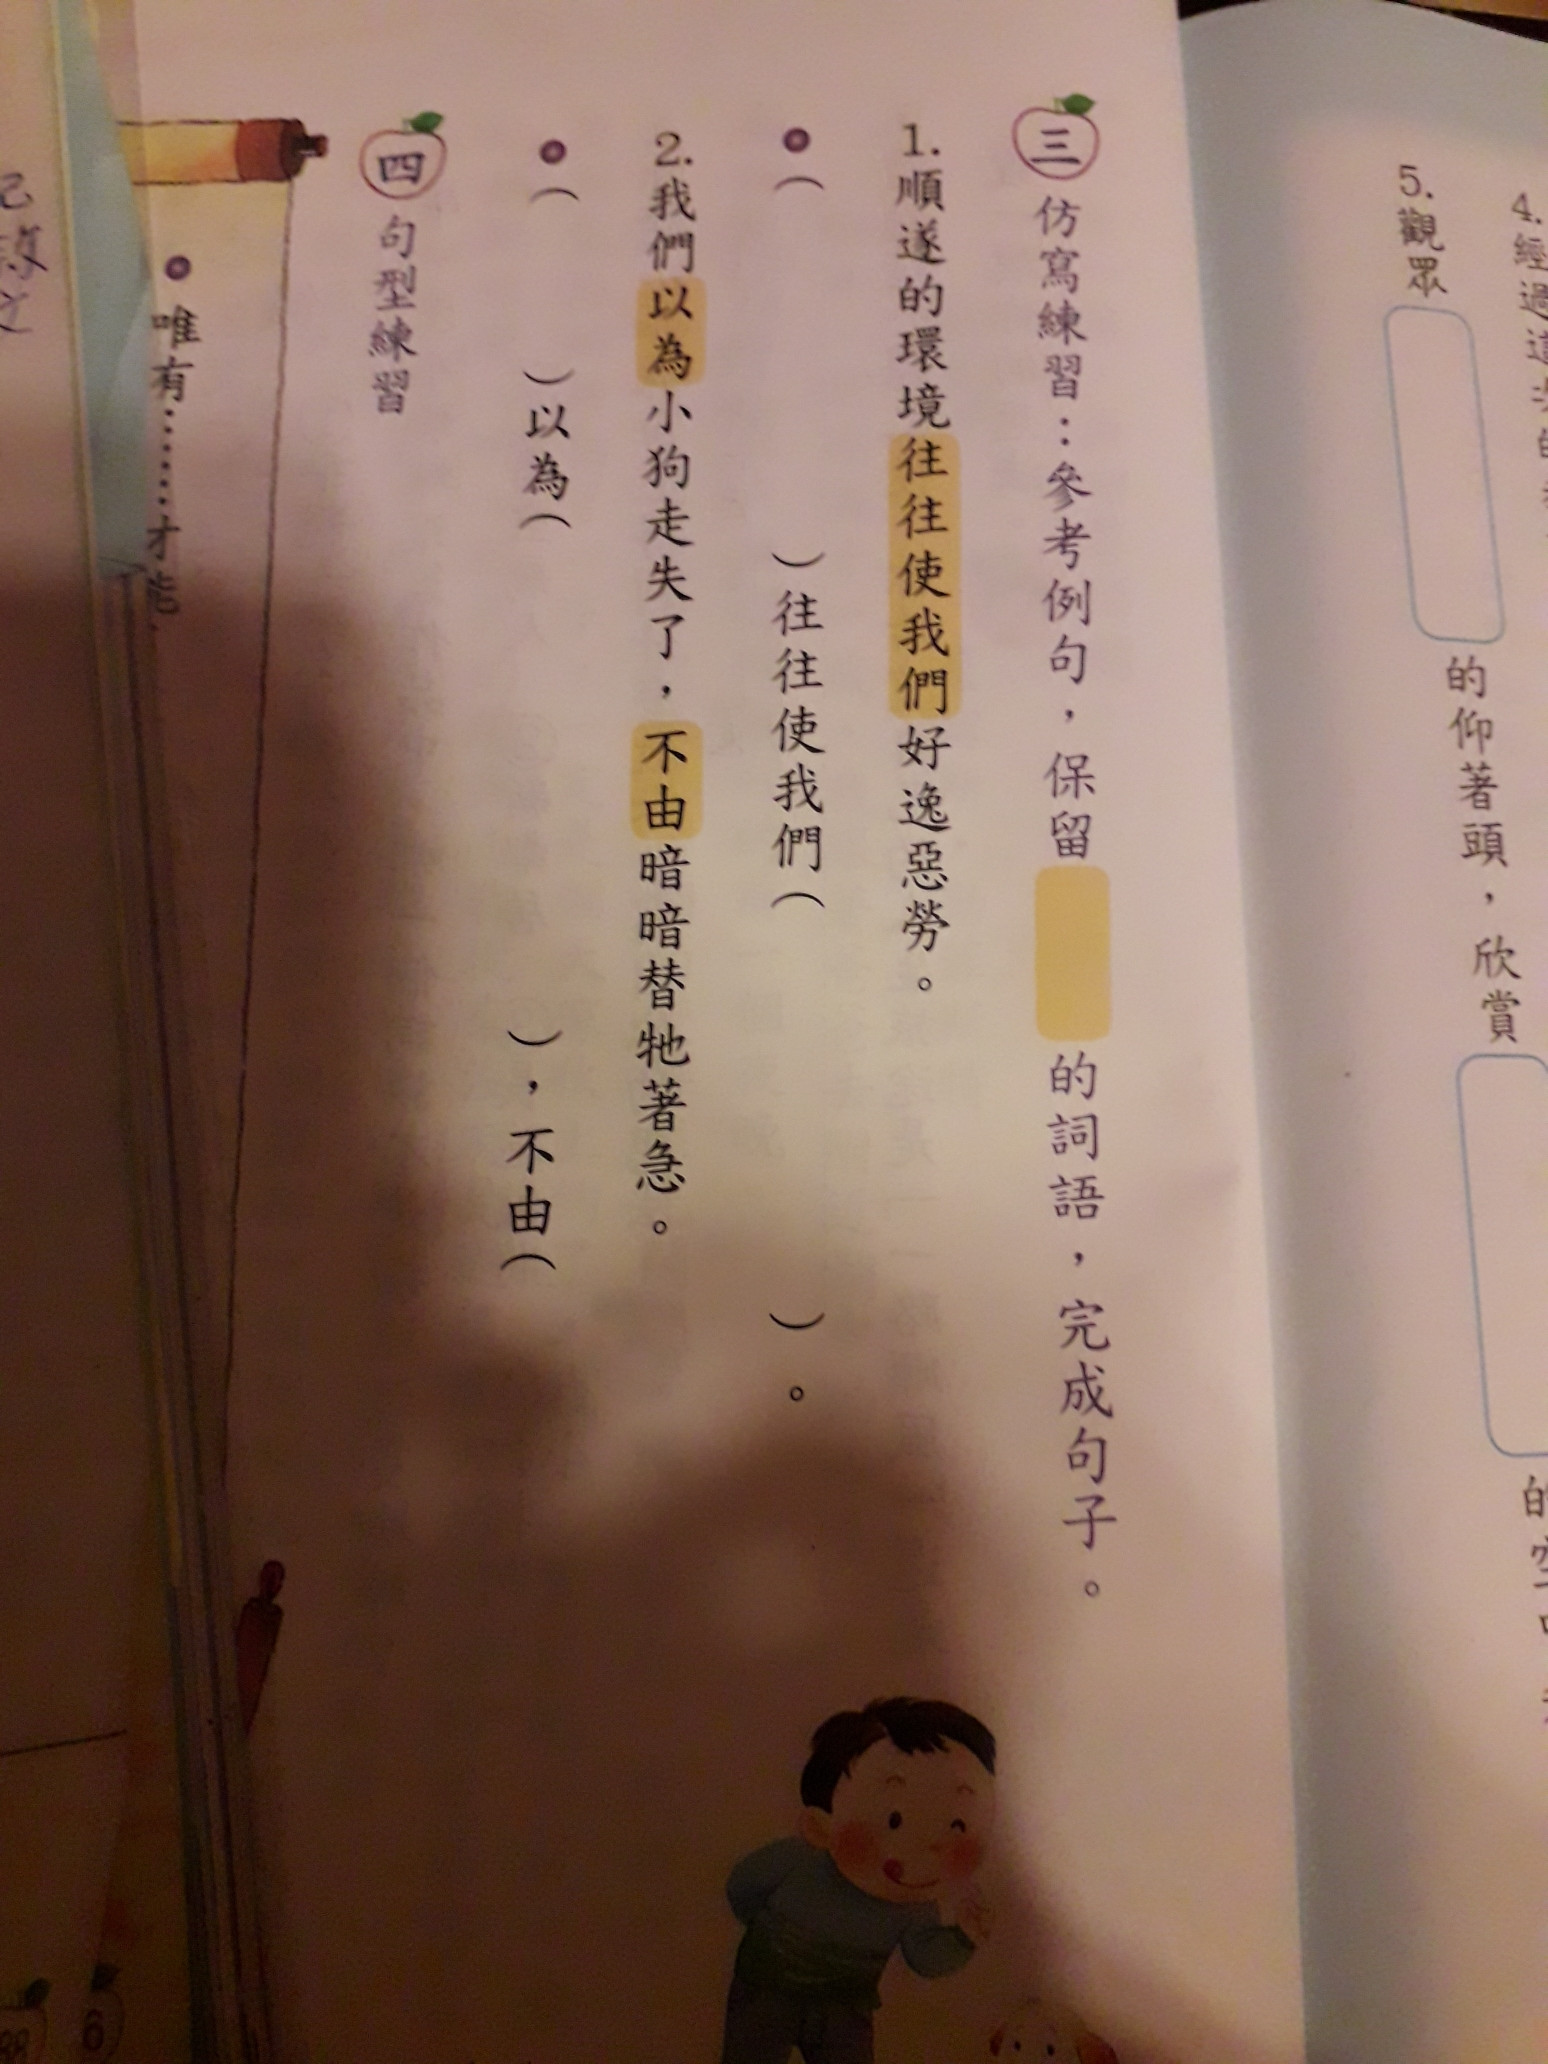 4.經過這次的
5.觀眾 的仰著頭，欣賞 的空中
三 仿寫練習：參考例句，保留 的詞語，完成句子。
1.順遂的環境往往使我們好逸惡勞。
（ ）往往使我們（ ）。
2.我們以為小狗走失了，不由暗暗替牠著急。
（ ）以為（ ），不由（
四 句型練習
唯有……才能
6